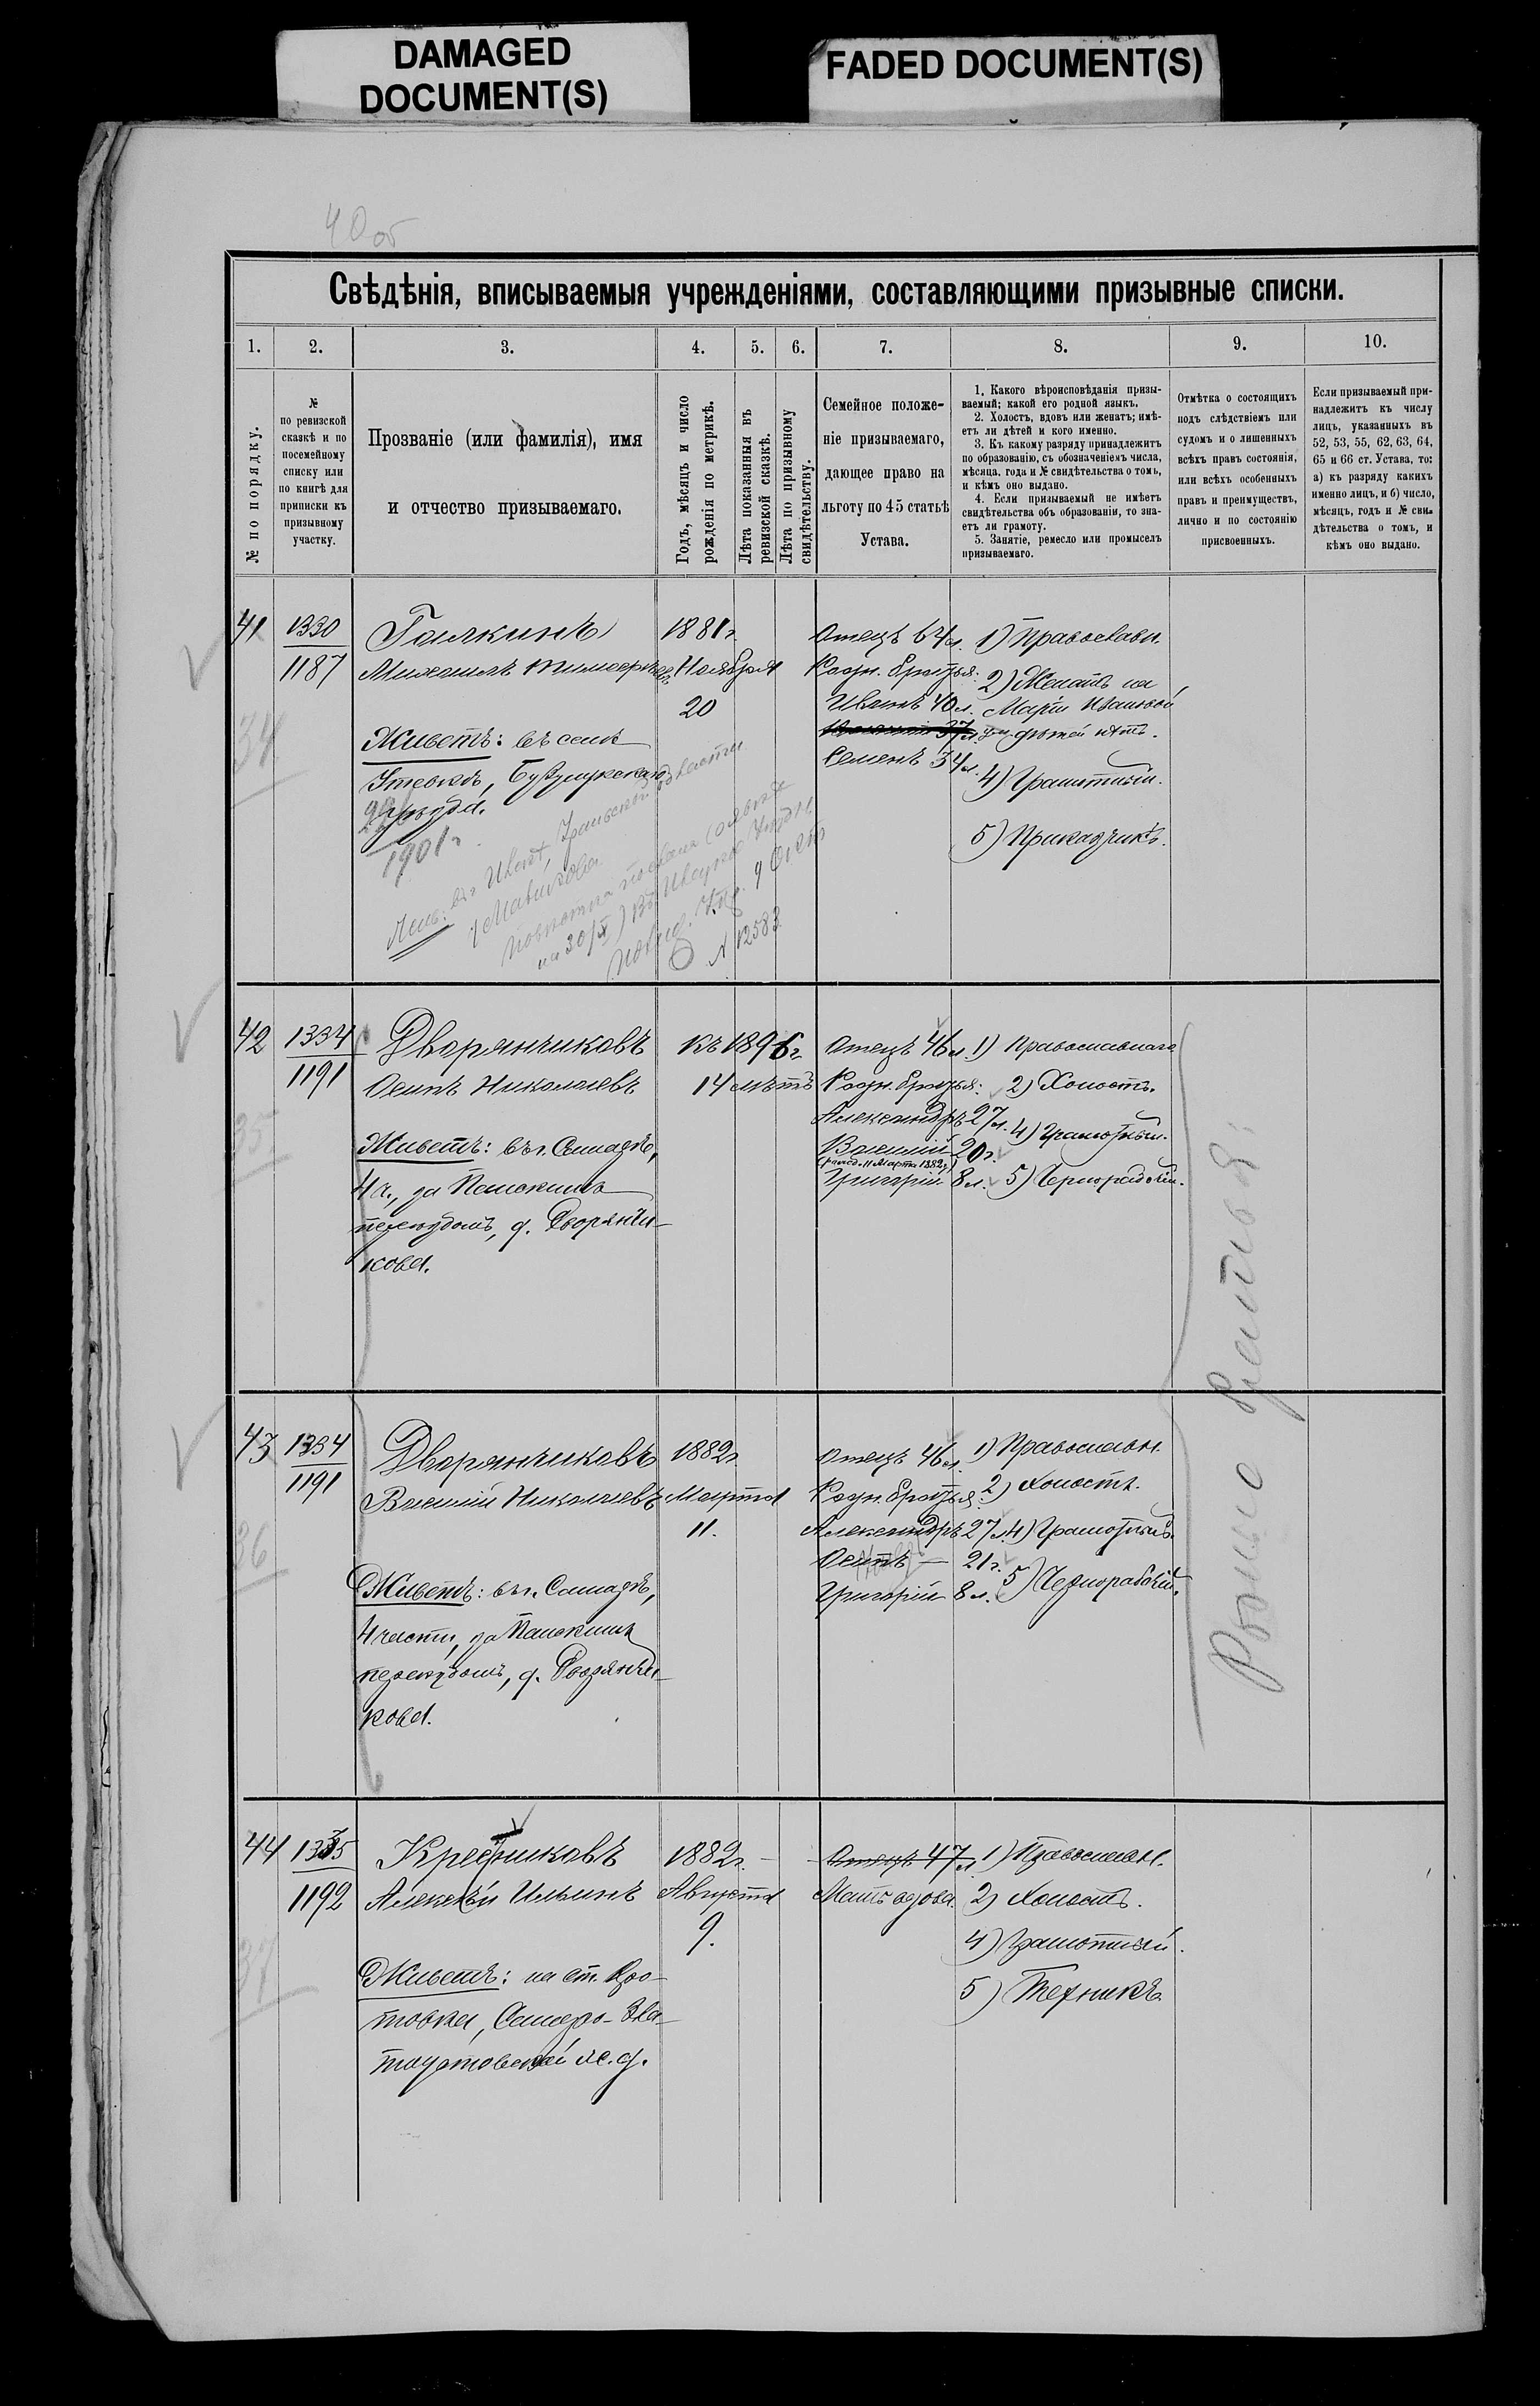 DAMAGED
DOCUMENT(S)
FADED DOCUMENT(S)
40 об
Свѣдѣнія, вписываемыя учрежденіями, составляющими призывные списки.
1.
2.
3.
4.
5.
6.
7.
8.
9.
10.
№ по порядку.
№
по ревизской
сказкѣ и по
посемейному
списку или
по книгѣ для
приписки къ
призывному
участку.
Прозваніе (или фамилія), имя
и отчество призываемаго.
Годъ, мѣсяцъ и число
рожденія по метрикѣ.
Лѣта показанныя въ
ревизской сказкѣ.
Лѣта по призывному
свидѣтельству.
Семейное положе-
ніе призываемаго,
дающее право на
льготу по 45 статьѣ
Устава.
1. Какого вѣроисповѣданія призы-
ваемый; какой его родной языкъ.
2. Холостъ, вдовъ или женатъ; имѣ-
етъ ли дѣтей и кого именно.
3. Къ какому разряду принадлежитъ
по образованію, съ обозначеніемъ числа,
мѣсяца, года и № свидѣтельства о томъ,
и кѣмъ оно выдано.
4. Если призываемый не имѣетъ
свидѣтельства объ образованіи, то зна-
етъ ли грамоту.
5. Занятіе, ремесло или промыселъ
призываемаго.
Отмѣтка о состоящихъ
подъ слѣдствіемъ или
судомъ и о лишенныхъ
всѣхъ правъ состоянія,
или всѣхъ особенныхъ
правъ и преимуществъ,
лично и по состоянію
присвоенныхъ.
Если призываемый при-
надлежитъ къ числу
лицъ, указанныхъ въ
52, 53, 55, 62, 63, 64,
65 и 66 ст. Устава, то:
а) къ разряду какихъ
именно лицъ, и б) число,
мѣсяцъ, годъ и № сви-
дѣтельства о томъ, и
кѣмъ оно выдано.
41
1330
1187
34
Галкинъ
Михаилъ Тимофѣевъ
Живетъ: въ селѣ
Утевкѣ, Бузулукскаго
уѣзда.
1901 г.
Уральской области
№ 12583
1881 г.
Ноября
20
Отецъ 64 л.
Родн. братья:
Иванъ 40 л.
37 л.
Семенъ 34 л.
1) Православн.
2) Женатъ на
Маріи Ивановой
дѣтей нѣтъ.
4) Грамотный.
5) Прикащикъ.
42
1334
1191
35
Дворянчиковъ
Осипъ Николаевъ
Живетъ: въ г. Самарѣ,
4 ч., за Панскимъ
переѣздомъ, д. Дворянчи-
кова.
къ 1896 г.
14 лѣтъ
Отецъ 46 л.
Родн. братья:
Александръ 27 л.
Василій 20 г.
(рожд. 11 Марта 1882 г.)
Григорій 8 л.
1) Православнаго
2) Холостъ.
4) Грамотный.
5) Чернорабочій.
43
1334
1191
36
Дворянчиковъ
Василій Николаевъ
Живетъ: въ г. Самарѣ,
4 части, за Панскимъ
переѣздомъ, д. Дворянчи-
кова.
1882 г.
Марта
11.
Отецъ 46 л.
Родн. братья:
Александръ 27 л.
Осипъ — 21 г.
Григорій 8 л.
1) Православн.
2) Холостъ.
4) Грамотный.
5) Чернорабочій.
Родные братья:
44
1335
1192
37
Алексѣй Ильинъ
Живетъ: на ст. Кро-
товка, Самаро-Зла-
тоустовской ж. д.
1882 г.
Августа
9.
Отецъ 47 л.
Мать вдова.
1) Православн.
2) Холостъ.
4) Грамотный.
5) Техникъ.